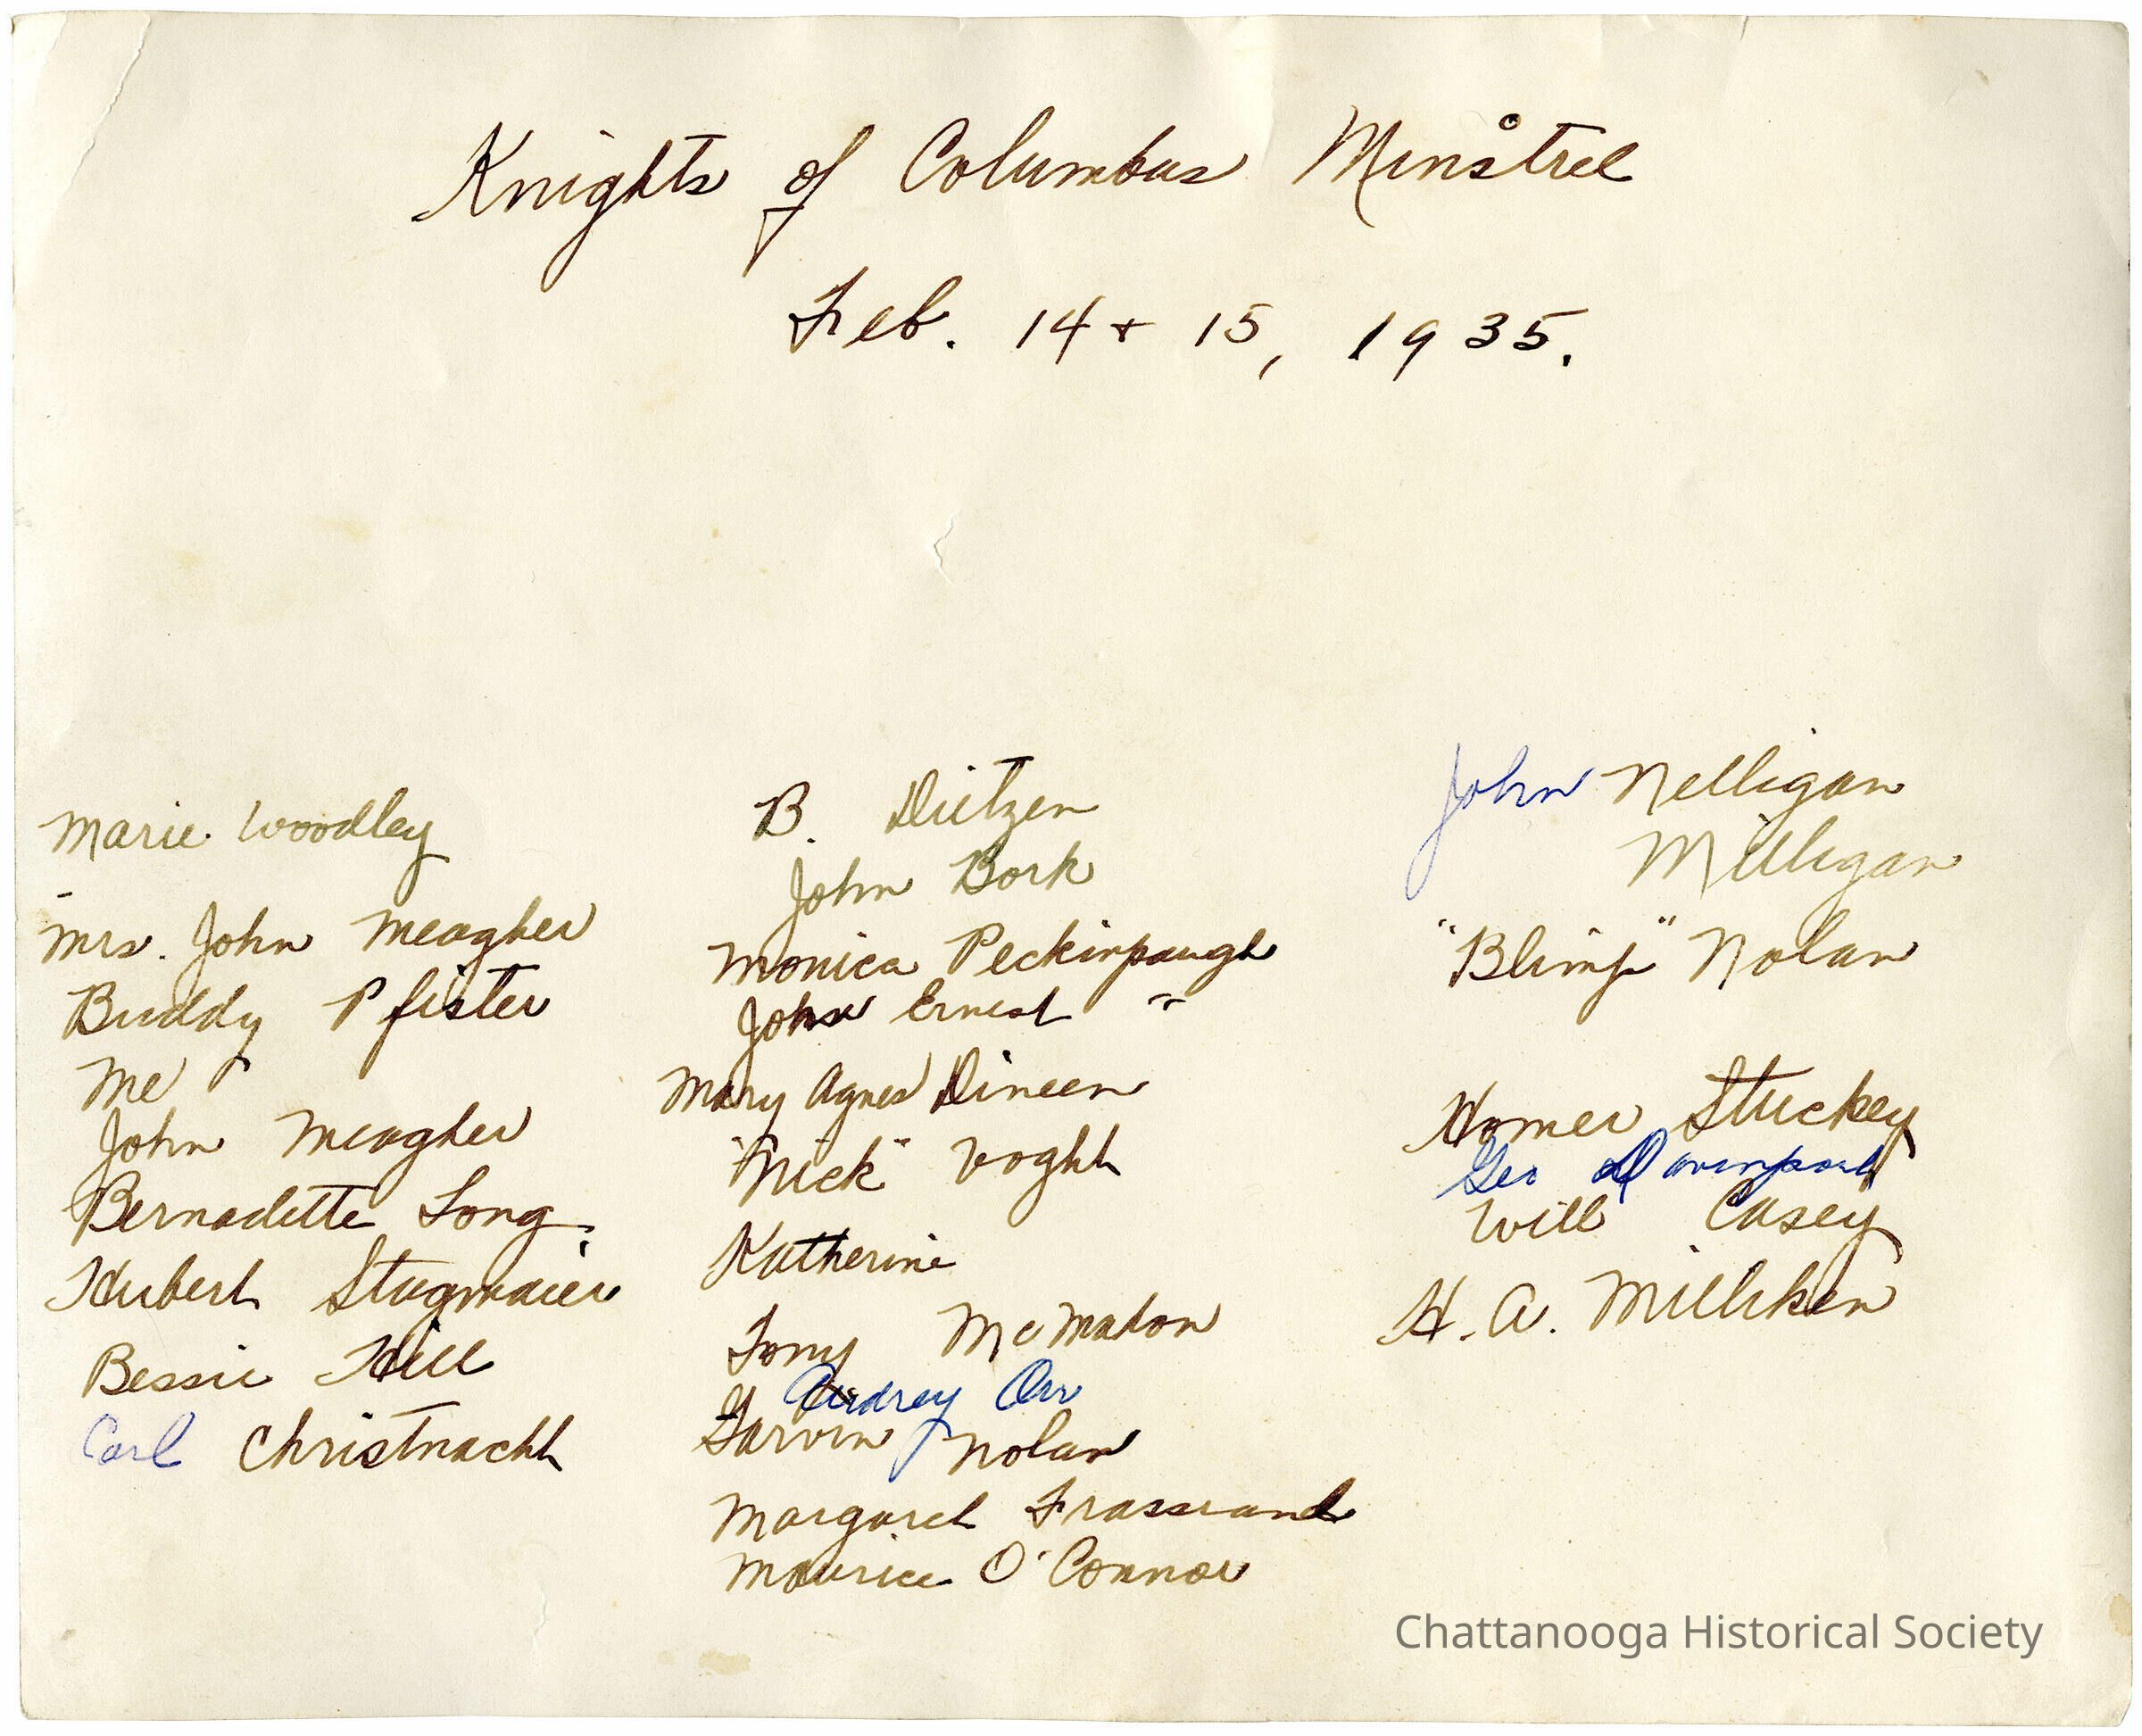 Knights of Columbus Minstrel
Feb. 14 + 15, 1935.
Marie Woodley
Mrs. John Meagher
Buddy Pfister
Me
John Meagher
Bernadette Long
Hubert Stegmaier
Bessie Hill
Carl Christnacht
B. Dietzen
John Bork
Monica Peckinpaugh
John Ernest "
Mary Agnes Dineen
"Nick" Voght
Katherine
Tony McMahon
Audrey Orr
Garvin Nolan
Margaret Frassrand
Maurice O'Connor
John Nelligan
Milligan
"Blimp" Nolan
Homer Stuckey
Geo Davenport
Will Casey
H. A. Milliken
Chattanooga Historical Society